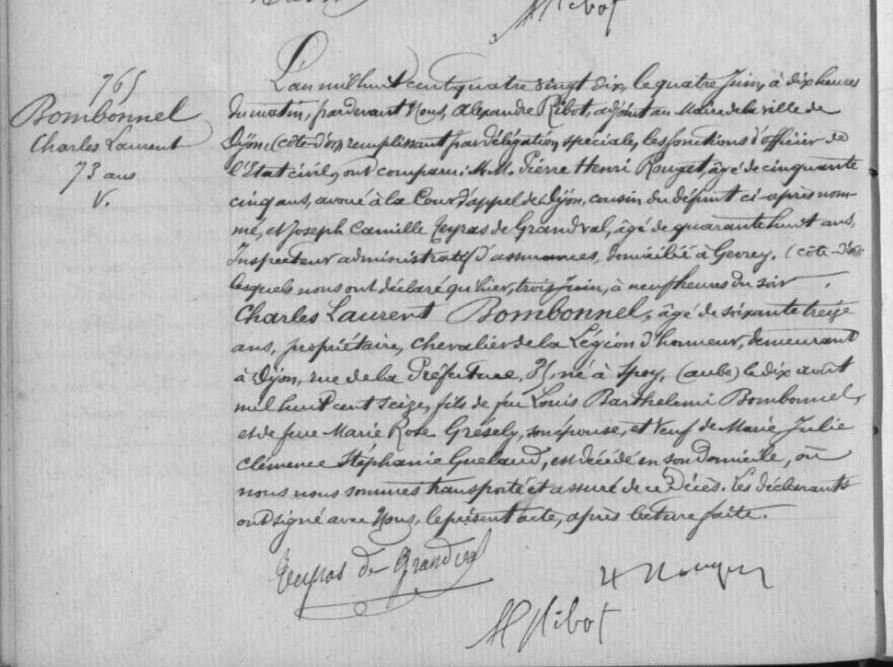 A Ribot
765
Bombonnel
Charles Laurent
73 ans
V.
L'an mil huit cent quatre vingt dix, le quatre Juin, à dix heures
du matin, pardevant Nous, Alexandre Ribot, adjoint au Maire de la ville de
Dijon (côte-d'or) remplissant par délégation spéciale, les fonctions d'officier de
l'Etat civil, ont comparu: M.M. Pierre Henri Rouget, âgé de cinquante
cinq ans, avoué à la Cour d'appel de Dijon, cousin du défunt ci-après nom-
mé, et Joseph Camille Teyras de Grandval, âgé de quarante huit ans,
Inspecteur administratif d'assurances, domicilié à Gevrey, (côte-d'or)
lesquels nous ont déclaré qu'hier, trois Juin, à neuf heures du soir
Charles Laurent Bombonnel, âgé de soixante treize
ans, propriétaire, Chevalier de la Légion d'honneur, demeurant
à Dijon, rue de la Préfecture, 35, né à Spoy, (aube) le dix août
mil huit cent seize, fils de feu Louis Barthelemi Bombonnel,
et de feue Marie Rose Gresely, son épouse, et Veuf de Marie Julie
Clémence Stéphanie Guelaud, est décédé en son domicile, où
nous nous sommes transporté et assuré de ce Décès. Les déclarants
ont signé avec Nous, le présent acte, après lecture faite.
Teyras de Grandval
H Rouget
A Ribot